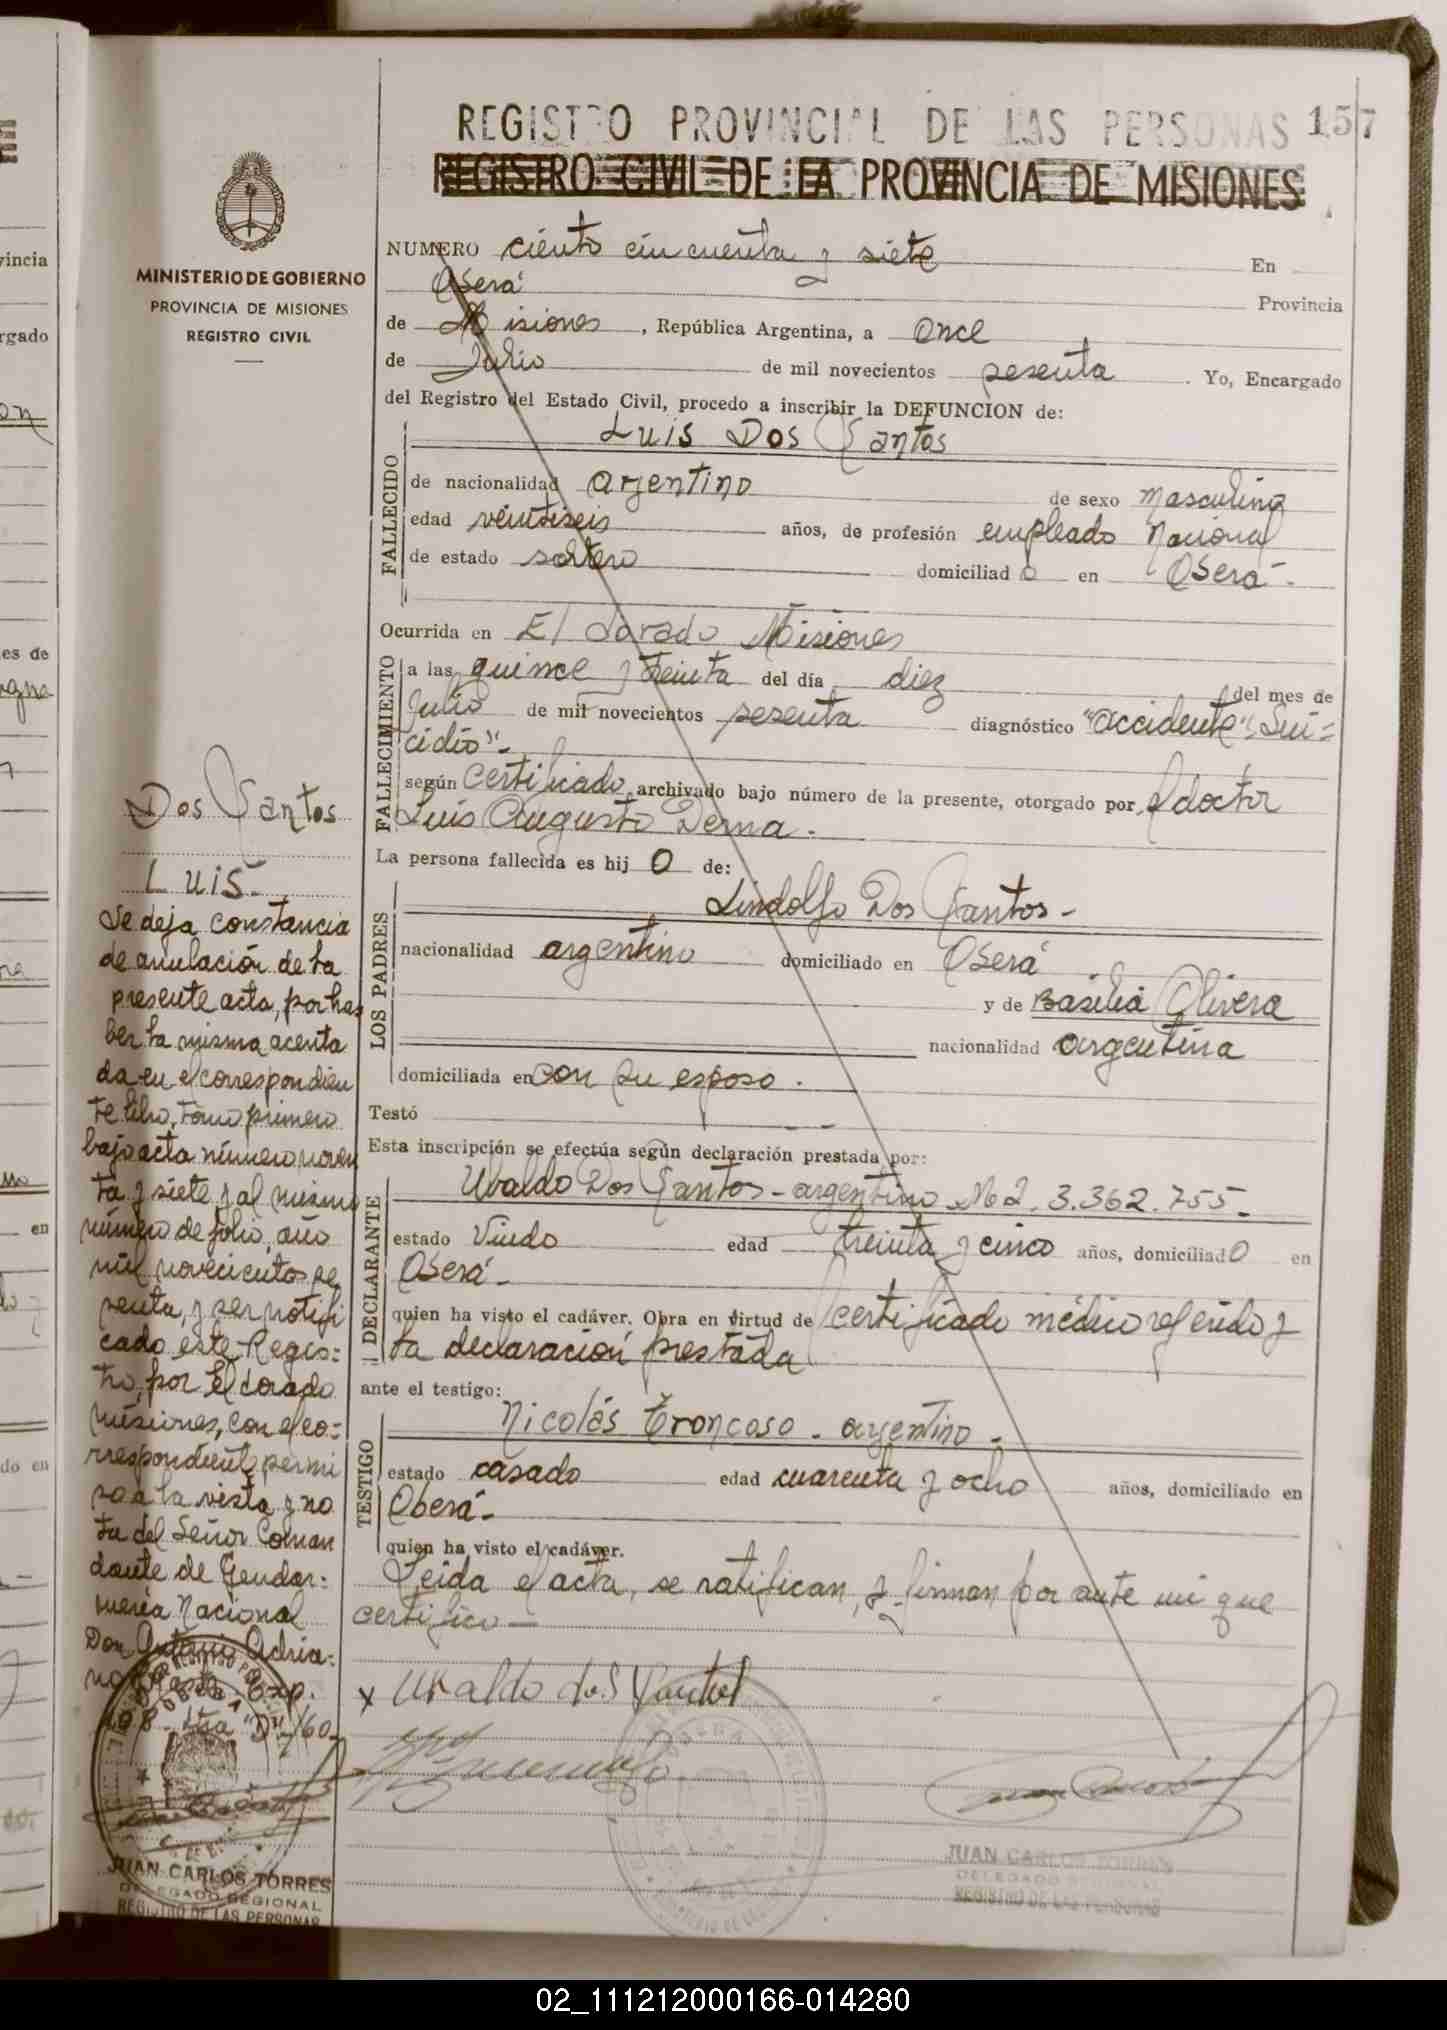 REGISTRO PROVINCIAL DE LAS PERSONAS 157
REGISTRO CIVIL DE LA PROVINCIA DE MISIONES
MINISTERIO DE GOBIERNO
PROVINCIA DE MISIONES
REGISTRO CIVIL
NUMERO ciento cincuenta y siete En
Oberá Provincia
de Misiones, República Argentina, a once
de Julio de mil novecientos sesenta. Yo, Encargado
del Registro del Estado Civil, procedo a inscribir la DEFUNCION de:
Luis Dos Santos
FALLECIDO
de nacionalidad argentino de sexo masculino
edad veintiseis años, de profesión empleado Nacional
de estado soltero domiciliado en Oberá-.
Ocurrida en El dorado, Misiones
FALLECIMIENTO
a las quince y treinta del día diez del mes de
Julio de mil novecientos sesenta diagnóstico "accidente", Sui=
cidio"-
según certificado, archivado bajo número de la presente, otorgado por el doctor
Luis Augusto Derna.-
La persona fallecida es hijo de:
LOS PADRES
Lindolfo Dos Santos-
nacionalidad argentino domiciliado en Oberá.
y de Basilia Olivera
nacionalidad argentina
domiciliada en con su esposo.
Testó - -
Esta inscripción se efectúa según declaración prestada por:
DECLARANTE
Ubaldo Dos Santos - argentino M2. 3.362.755-
estado Viudo edad treinta y cinco años, domiciliado en
Oberá-
quien ha visto el cadáver. Obra en virtud de certificado médico referido y
la declaración prestada
ante el testigo:
TESTIGO
Nicolás Troncoso - argentino -
estado casado edad cuarenta y ocho años, domiciliado en
Oberá-
quien ha visto el cadáver.
Leida el acta, se ratifican, y firman por ante mi que
certifico-
x Uvaldo dos Santos
JUAN CARLOS TORRES
DELEGADO REGIONAL
REGISTRO DE LAS PERSONAS
Dos Santos
Luis-
Se deja constancia
de anulación de la
presente acta, por ha
ber la misma acenta
da en el correspondien
te libro, tomo primero
bajo acta número noven
ta y siete y al mismo
número de folio, año
mil novecientos se
senta, y ser notifi
cado este Regis=
tro, por El dorado
misiones, con el co=
rrespondiente permi
so a la vista y no
ta del Señor Coman
dante de Gendar=
meria Nacional
Don Antonio Adria=
no Exp.
108- Ltra "D"-/60-
JUAN CARLOS TORRES
DELEGADO REGIONAL
REGISTRO DE LAS PERSONAS
02_111212000166-014280